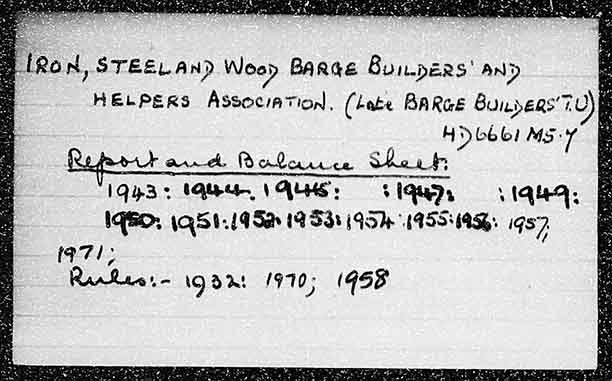 IRON, STEEL AND WOOD BARGE BUILDERS' AND
HELPERS ASSOCIATION. (Late BARGE BUILDERS' T.U)
HD6661 M5.7
Report and Balance Sheet:
1943: 1944. 1945: :1947: :1949:
1950: 1951: 1952: 1953: 1954 :1955: 1956: 1957;
1971;
Rules:- 1932: 1970; 1958